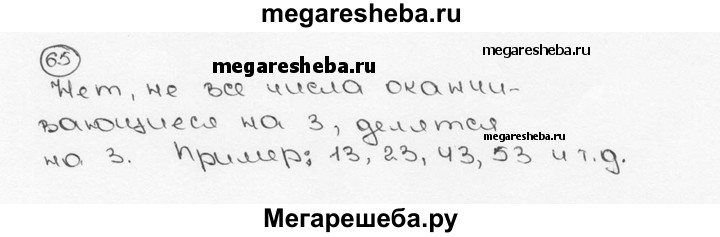 megaresheba.ru
65
megaresheba.ru
megaresheba.ru
Нет, не все числа оканчи-
вающиеся на 3, делятся
megaresheba.ru
на 3. Пример: 13, 23, 43, 53 и т.д.
Мегарешеба.ру